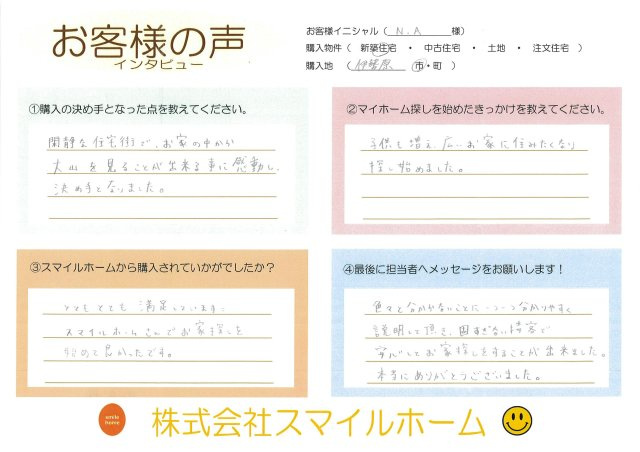 お客様の声
インタビュー
お客様イニシャル（ N.A 様）
購入物件（ 新築住宅 ・ 中古住宅 ・ 土地 ・ 注文住宅 ）
購入地 （ 伊勢原 市・町 ）
①購入の決め手となった点を教えてください。
閑静な住宅街で、お家の中から
大山を見ることが出来る事に感動し、
決め手となりました。
②マイホーム探しを始めたきっかけを教えてください。
子供も増え、広いお家に住みたくなり
探し始めました。
③スマイルホームから購入されていかがでしたか？
とても満足しています。
スマイルホームさんでお家探しを
始めて良かったです。
④最後に担当者へメッセージをお願いします！
色々と分からないことに一つ一つ分かりやすく
説明して頂き、
安心してお家探しをすることが出来ました。
本当にありがとうございました。
smile
home
株式会社スマイルホーム